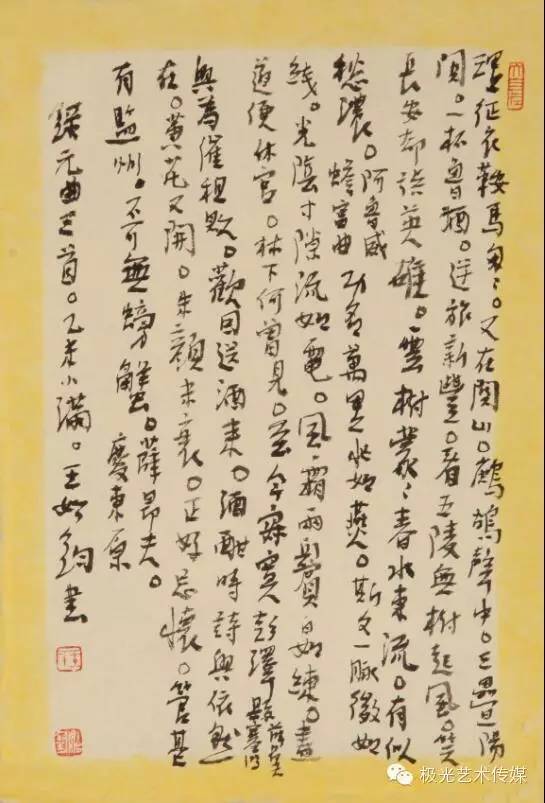 理征衣鞍馬匆匆。又在関山。鷓鴣聲中。三疊陽
関。一杯魯酒。逆旅新豐。看五陵無樹起風。笑
長安却誤英雄。雲樹濛濛。春水東流。有似
愁濃。阿魯威蟾宮曲 功名萬里忙如燕。斯文一脈微如
綫。光陰寸隙流如電。風霜兩鬢白如練。盡
道便休官。林下何曾見。至今寂寞彭澤縣 薛昂夫塞鴻
興為催租敗。歡因送酒來。酒酣時詩興依然
在。黃花又開。朱顏未衰。正好忘懷。管甚
有監州。不可無螃蟹。薛昂夫。慶東原
錄元曲三首。乙未小滿。王如鈞書
极光艺术传媒